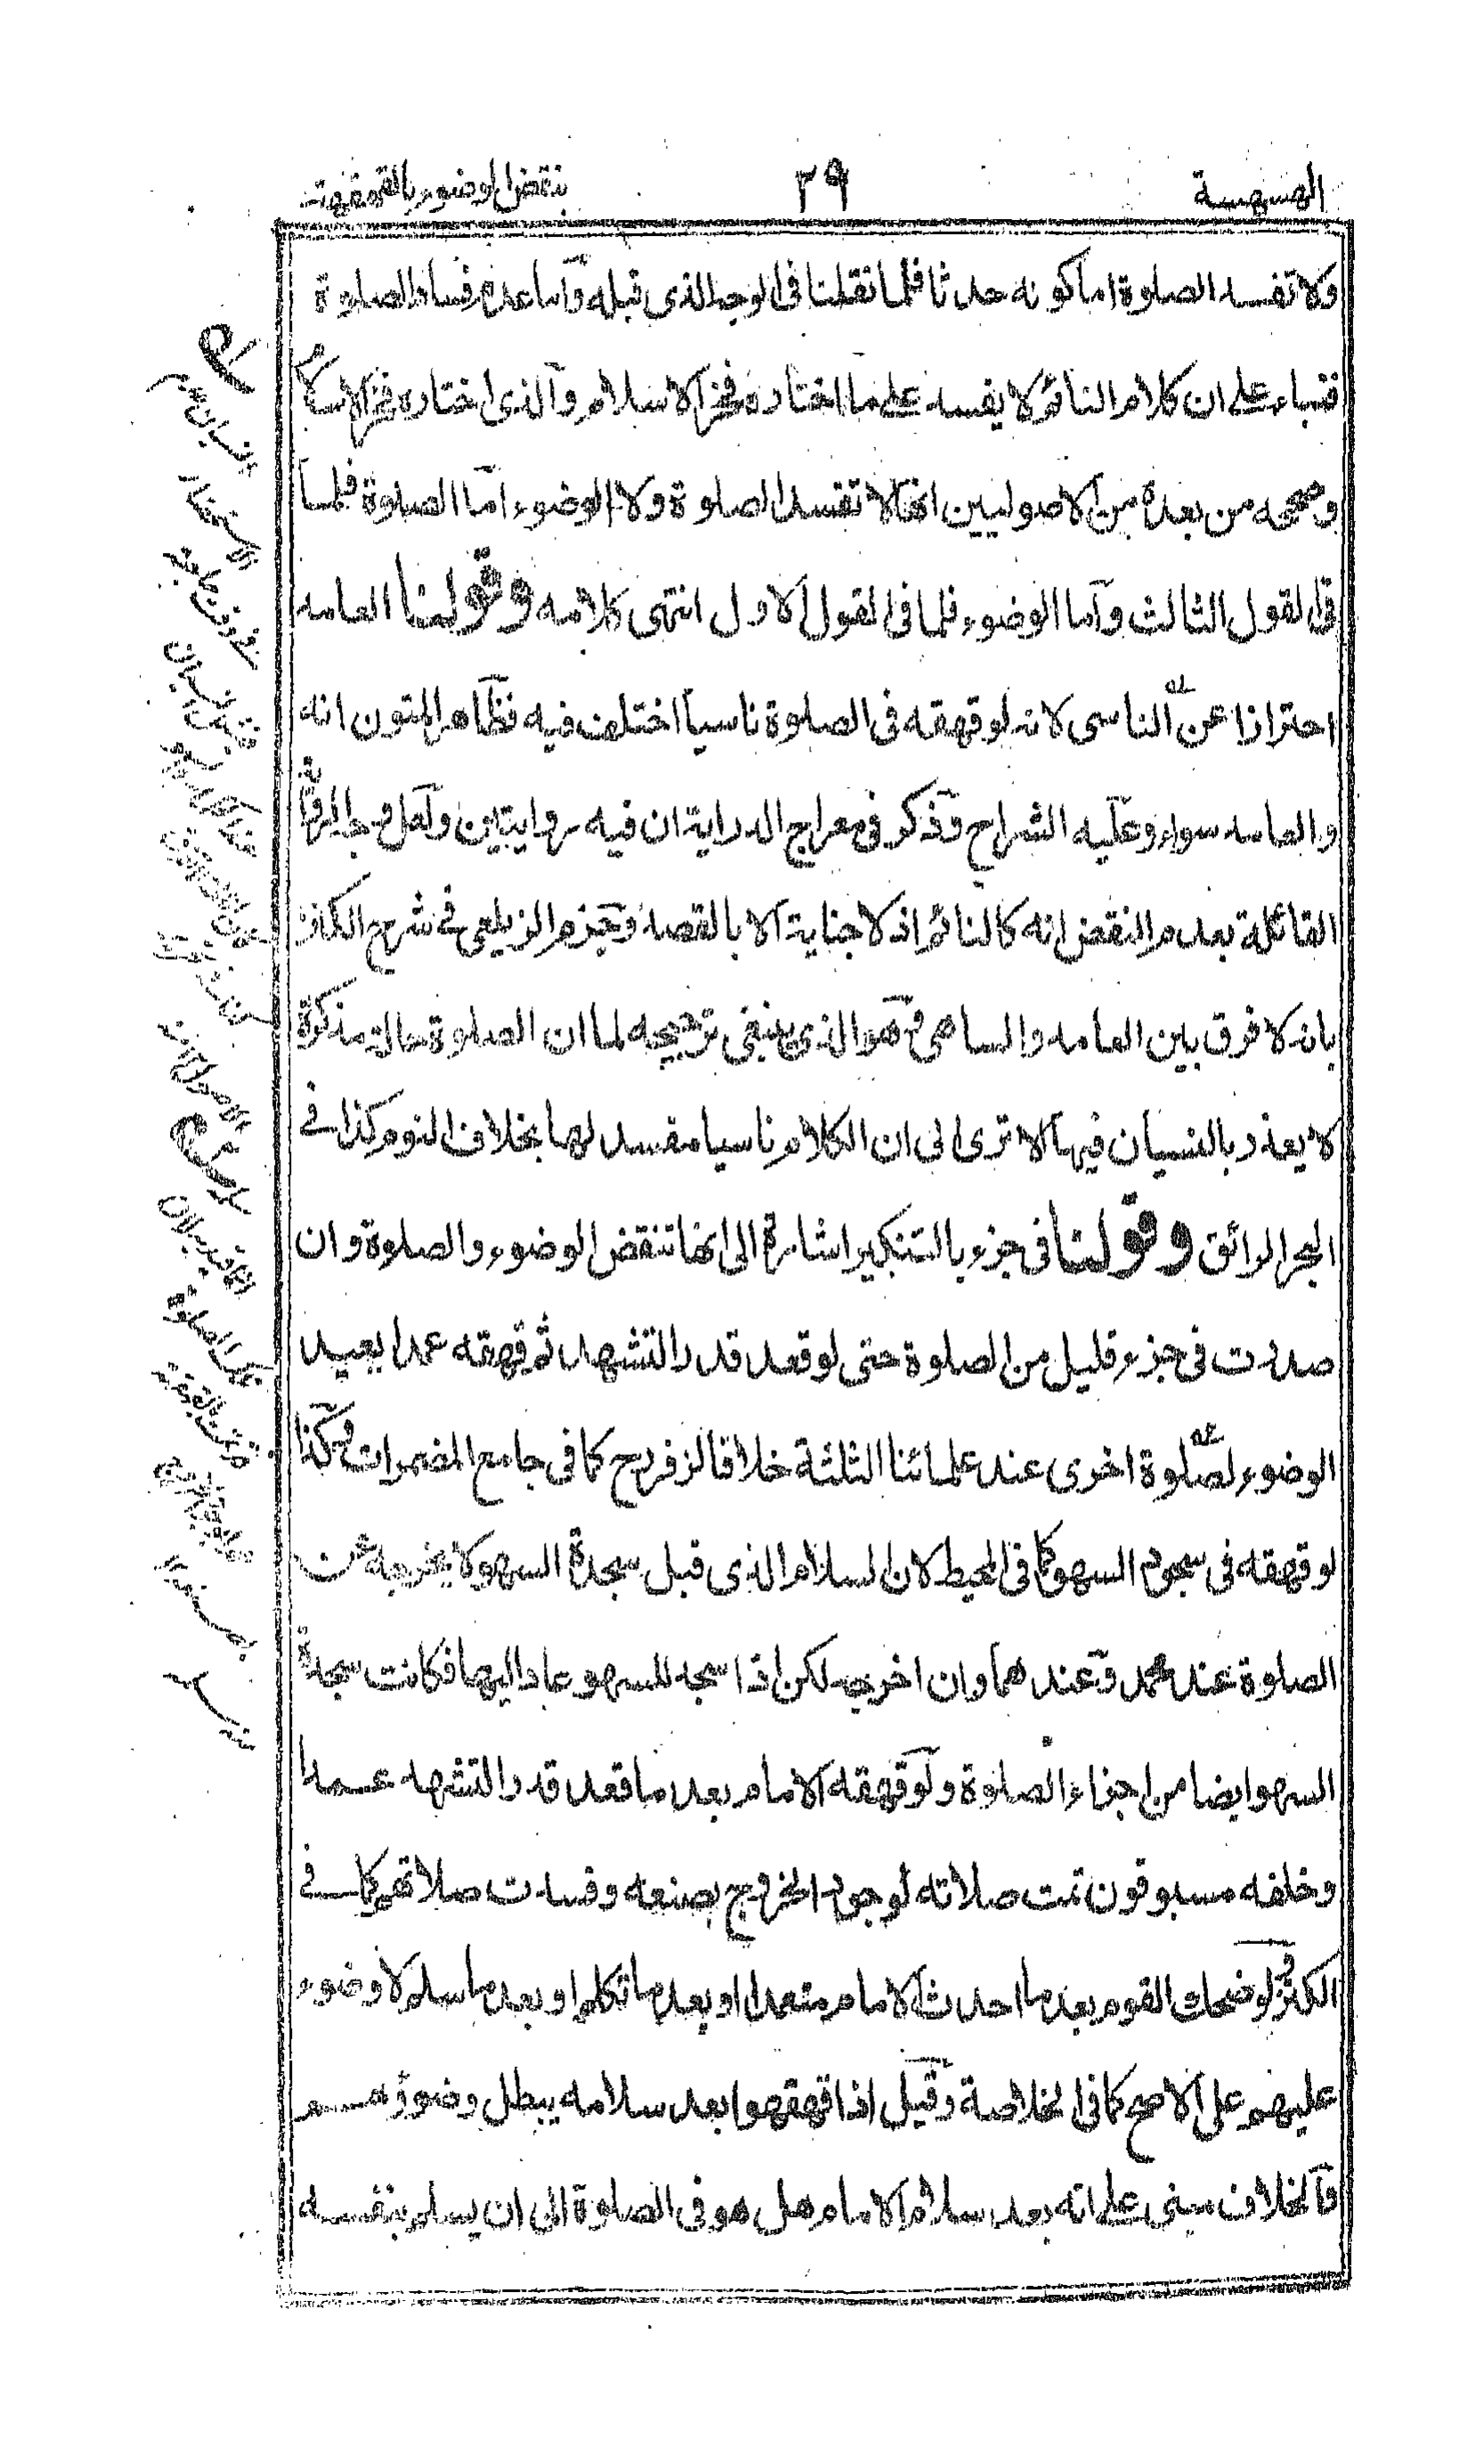 الهسهسة ٢٩ بنقض الوضوء بالقهقهة
ولا تفسد الصلوة اما كونه حدثا فلما نقلنا فى الوجه الذى قبله وآما عدم فساد الصلوة
فبناء على ان كلام النائم لا يفسد على ما اختاره فخر الاسلام وآلذى اختاره فخر الاسلام
وصححه من بعده من الاصوليين انها لا تفسد الصلوة ولا الوضوء امّا الصلوة فلما
فى القول الثالث وآما الوضوء فلما فى القول الاول انتهى كلامه وقولنا العامد
احترازا عن الناسى لانه لو قهقه فى الصلوة ناسيا اختلف فيه فظآهر المتون انه
والعامد سواء وعليه الشراح وذكر فى معراج الدراية ان فيه روايتين ولعل وجه الرواية
القائلة بعدم النقض انه كالنائم اذ لا جناية الا بالقصد وجزم الزيلعى فى شرح الكنز
بانه لا فرق بين العامد والساهى وهو الذى ينبغى ترجيحه لما ان الصلوة حالة مذكرة
لا يعذر بالنسيان فيها الا ترى الى ان الكلام ناسيا مفسد لها بخلاف النوم كذا فى
البحر الرائق وقولنا فى جزء بالتنكير اشارة الى انها تنقض الوضوء والصلوة وان
صدرت فى جزء قليل من الصلوة حتى لو قعد قدر التشهد ثم قهقه عمدا يعيد
الوضوء لصلوة اخرى عند علمائنا الثلثة خلافا لزفر رح كما فى جامع المضمرات وكذا
لو قهقه فى سجود السهو كما فى المحيط لان السلام الذى قبل سجدة السهو لا يخرجه عن
الصلوة عند محمد وعندهما وان اخرجه لكن اذا سجد للسهو عاد اليها فكانت سجدة
السهو ايضا من اجزاء الصلوة ولو قهقه الامام بعد ما قعد قدر التشهد عمدا
وخلفه مسبوقون تمت صلاته لوجود الخروج بصنعه وفسدت صلاتهم كما فى
الكنز ولو ضحك القوم بعد ما احدث الامام متعمدا او بعد ما تكلم او بعد ما سلم لا وضوء
عليهم على الاصح كما فى الخلاصة وقيل اذا قهقهوا بعد سلامه يبطل وضوؤهم
فالخلاف مبنى على انه بعد سلام الامام هل هو فى الصلوة الى ان يسلم بنفسه